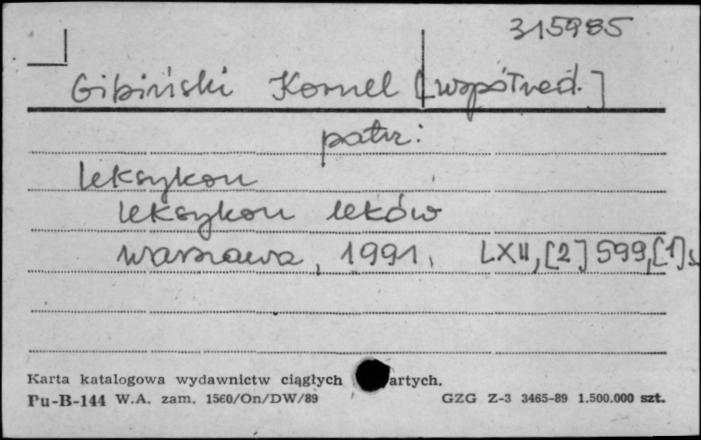 315985
Gibiński Kornel [współred.]
patrz:
Leksykon
Leksykon leków
Warszawa, 1991. LXII, [2] 599, [1] s.
Karta katalogowa wydawnictw ciągłych artych.
Pu-B-144 W.A. zam. 1560/On/DW/89 GZG Z-3 3465-89 1.500.000 szt.